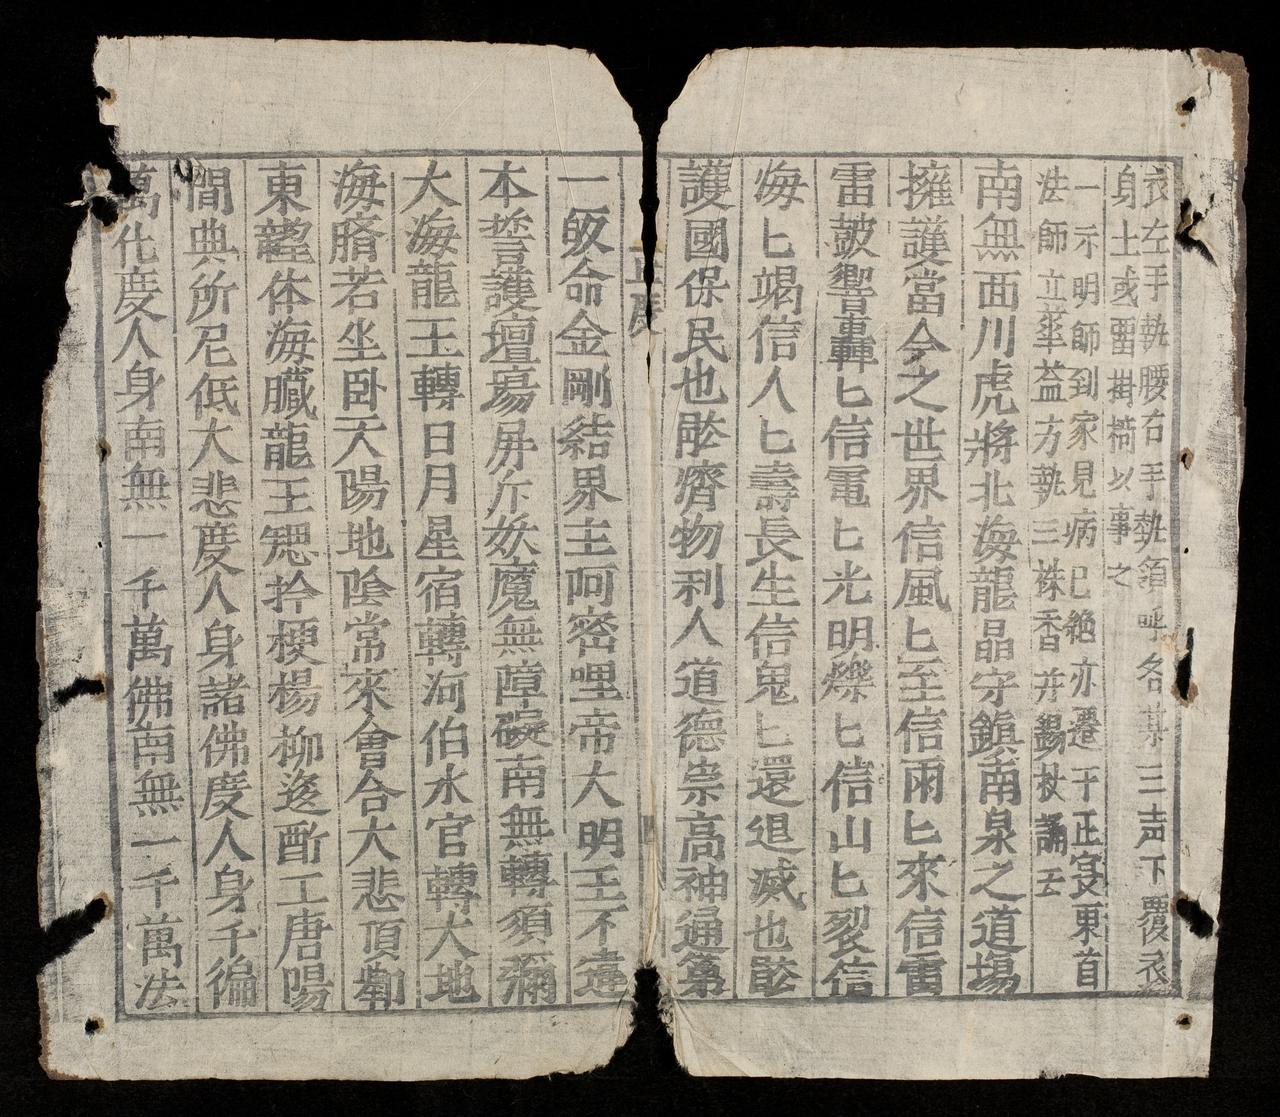 衣左手執腰右手執領呼名某三声下覆衣
身上或置掛椅以事之
一示明師到家見病已絶亦遷于正寝東首
法師立華盖方執三株香并錫杖誦云
南無西川虎將北海龍晶守鎮南泉之道場
擁護當今之世界信風匕至信雨匕來信雷
雷皷響轟匕信電匕光明爍匕信山匕裂信
海匕竭信人匕壽長生信鬼匕還退滅也
護國保民也 濟物利人道德崇高神通第
一皈命金剛結界主呵密哩帝大明王不違
本誓護壇場屏斥妖魔無障礙南無轉須彌
大海龍王轉日月星宿轉河伯水官轉大地
海臍若坐卧天陽地陰常來會合大悲頂
東 体海臓龍王 梗楊柳 酌工唐陽
間典所尼低大悲度人身諸佛度人身千徧
萬化度人身南無一千萬佛南無一千萬法